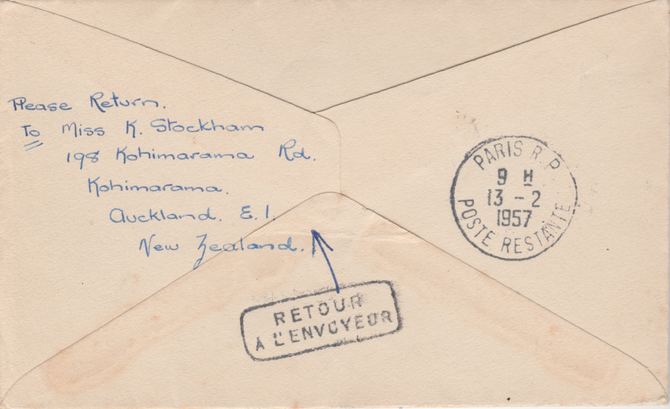 Please Return.
To Miss K. Stockham
198 Kohimarama Rd.
Kohimarama.
Auckland. E.1.
New Zealand.
PARIS R.P.
9 H
13 - 2
1957
POSTE RESTANTE
RETOUR
A L'ENVOYEUR